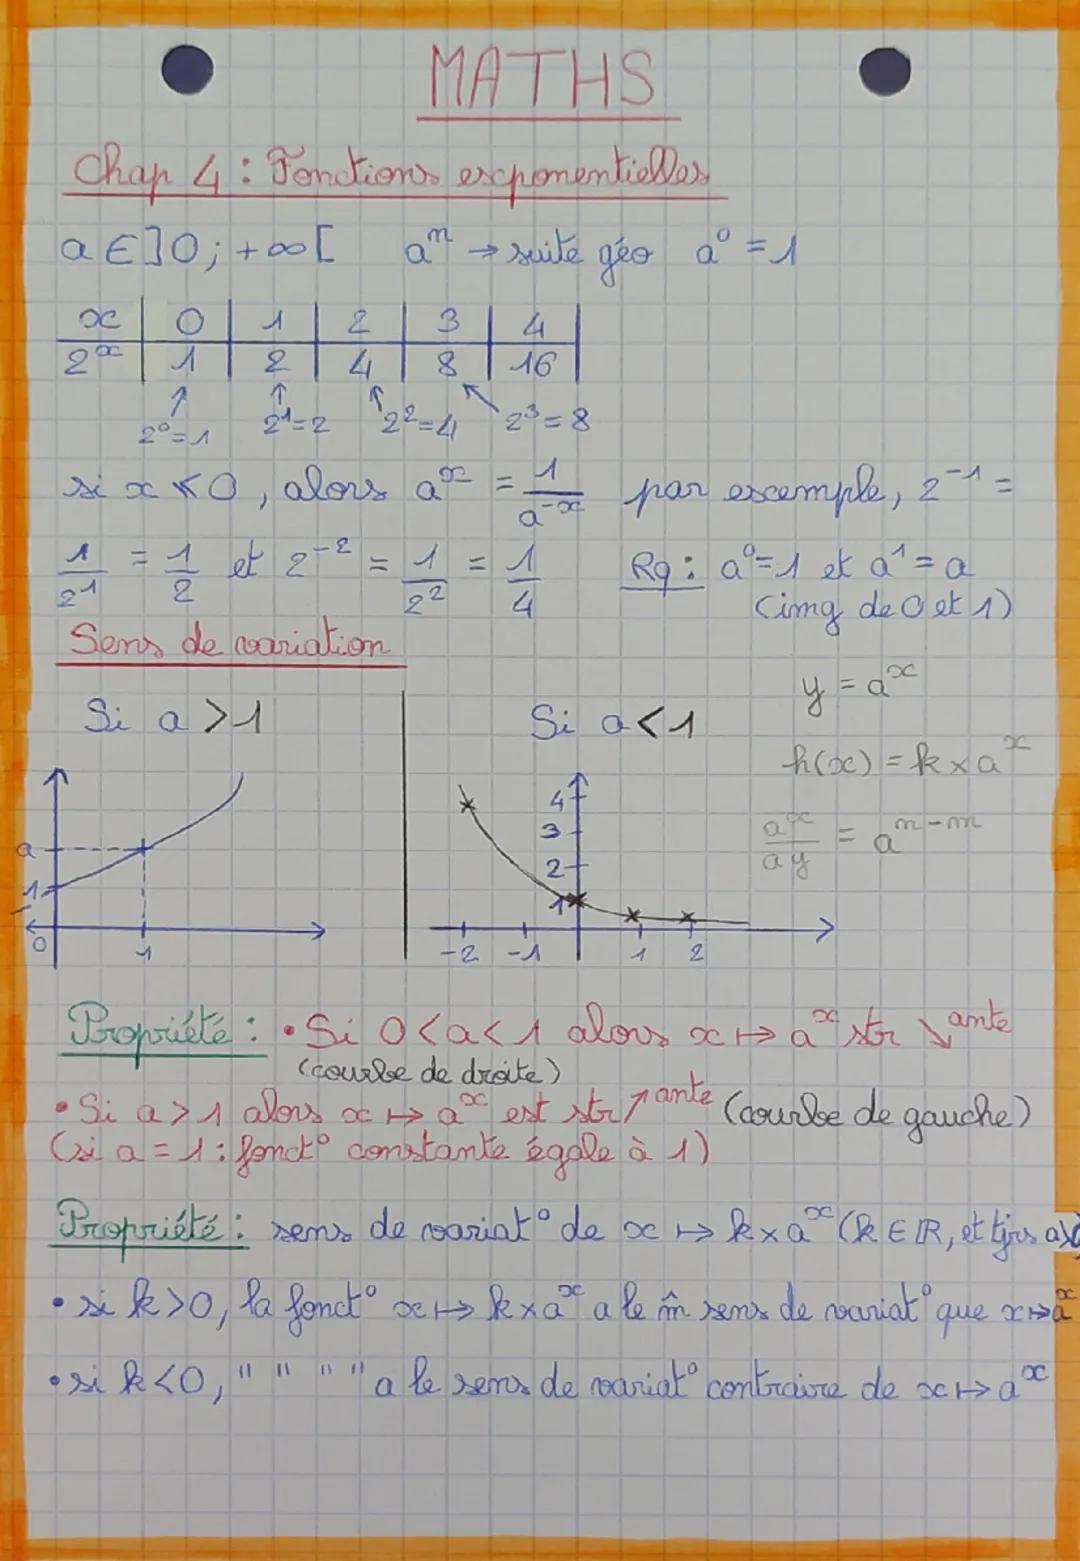 MATHS
Chap 4 : Fonctions exponentielles
a ∈ ]0; +∞[ aⁿ → suite géo a⁰ = 1
x | 0 | 1 | 2 | 3 | 4
2ˣ | 1 | 2 | 4 | 8 | 16
2⁰=1 2¹=2 2²=4 2³=8
si x < 0, alors aˣ = 1/a⁻ˣ par exemple, 2⁻¹ =
1/2¹ = 1/2 et 2⁻² = 1/2² = 1/4 Rq : a⁰=1 et a¹=a
(img de 0 et 1)
Sens de variation
y = aˣ
Si a > 1 Si a < 1
h(x) = k × aˣ
aˣ/ay = aⁿ⁻ᵐ
a 1 0 1
4 3 2 1 -2 -1 1 2
Propriété : • Si 0 < a < 1 alors x ↦ aˣ str ↘ante
(courbe de droite)
• Si a > 1 alors x ↦ aˣ est str ↗ante (courbe de gauche)
(si a = 1 : fonct° constante égale à 1)
Propriété : sens de variat° de x ↦ k × aˣ (k ∈ ℝ, et tjrs a>0
• si k > 0, la fonct° x ↦ k × aˣ a le m̂ sens de variat° que x ↦ aˣ
• si k < 0, " " " " a le sens de variat° contraire de x ↦ aˣ